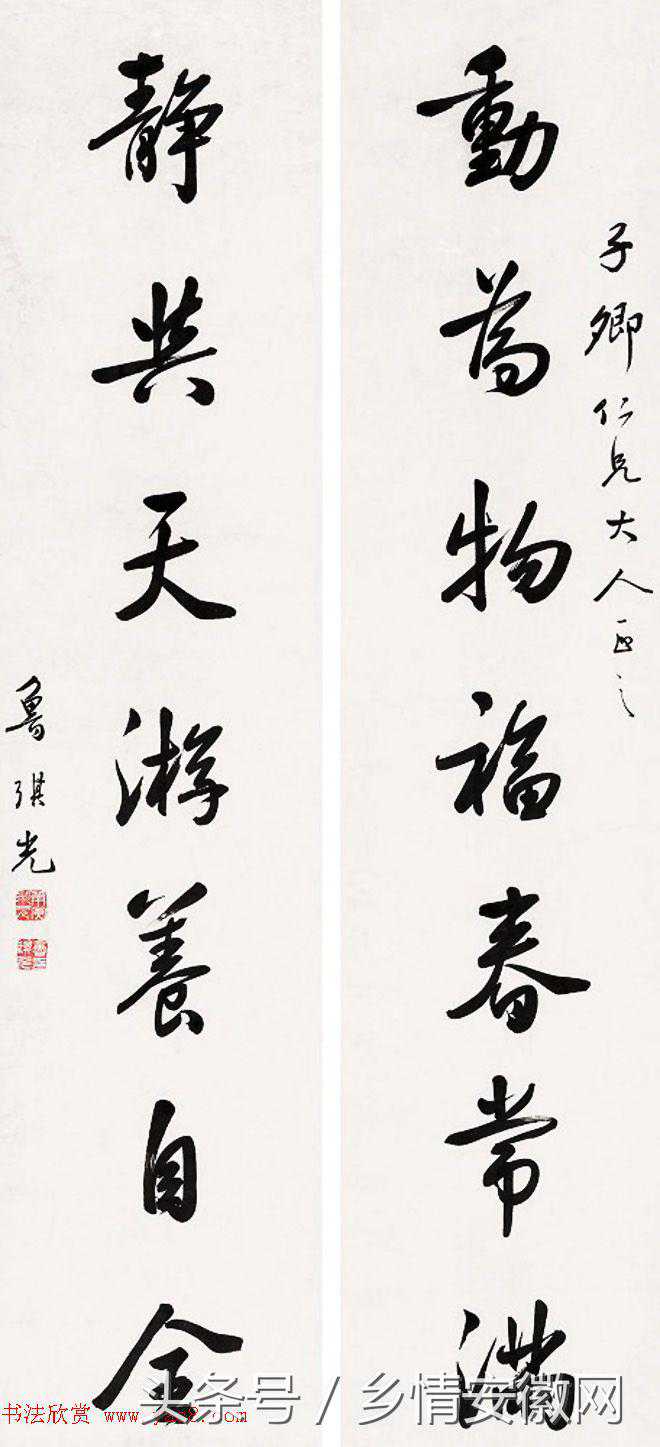 子卿仁兄大人正之
動為物福春常滿
靜與天游養自全
魯琪光
头条号 / 乡情安徽网
书法欣赏 www.yac8.com